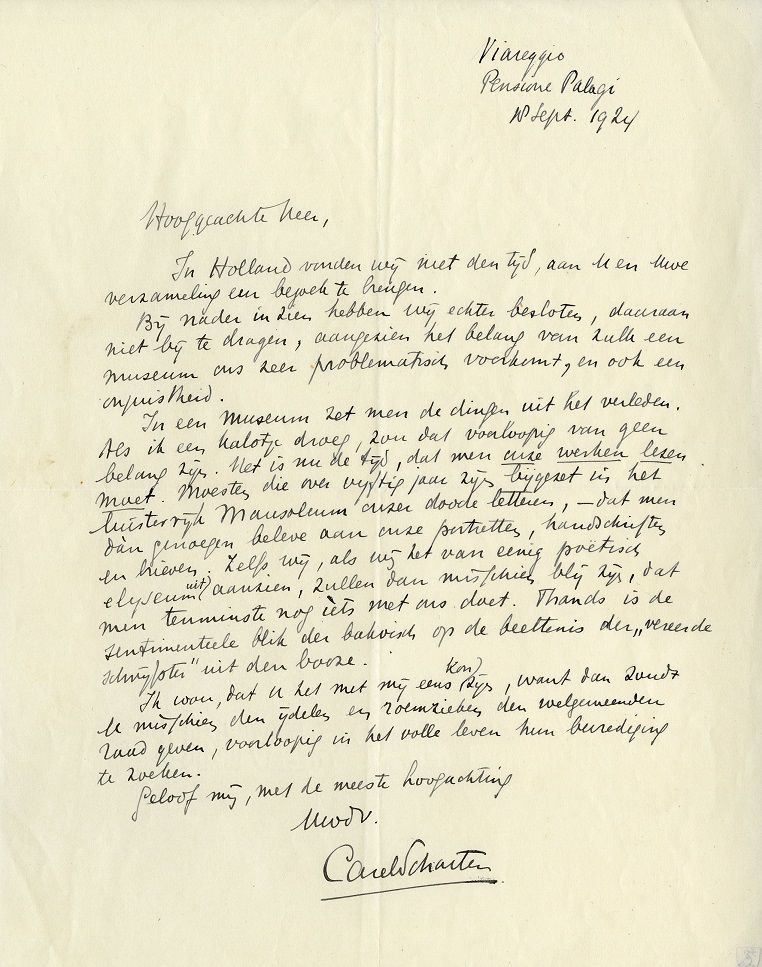 Viareggio
Pensione Palagi
18 Sept. 1924
Hooggeachte Heer,
In Holland vonden wij niet den tijd, aan U en Uwe
verzameling een bezoek te brengen.
Bij nader inzien hebben wij echter besloten, daaraan
niet bij te dragen, aangezien het belang van zulk een
museum ons zeer problematisch voorkomt, en ook een
onjuistheid.
In een museum zet men de dingen uit het verleden.
Als ik een kalotje droeg, zou dat voorloopig van geen
belang zijn. Het is nu de tijd, dat men onze werken lezen
moet. Moesten die over vijftig jaar zijn bijgezet in het
luisterrijk Mausoleum onzer doode letteren, — dat men
dàn genoegen beleve aan onze portretten, handschriften
en brieven. Zelfs wij, als wij het van eenig poëtisch
elyseum uit aanzien, zullen dan misschien blij zijn, dat
men tenminste nog ièts met ons doet. Thands is de
sentimenteele blik der bakvisch op de beeltenis der „vereerde
schrijfster" uit den booze.
Ik wou, dat U het met mij eens kon zijn, want dan zoudt
U misschien den ijdelen en roemzieken den welgemeenden
raad geven, voorloopig in het volle leven hun bevrediging
te zoeken.
Geloof mij, met de meeste hoogachting
Uwdv.
Carel Scharten